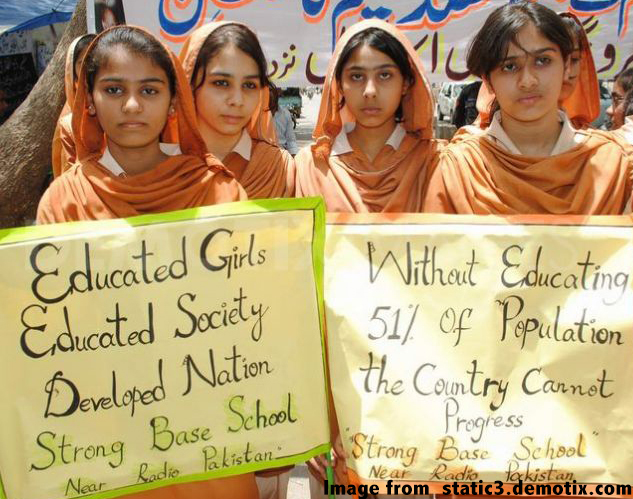 نزد
Educated Girls
Educated Society
Developed Nation
Strong Base School
Near Radio Pakistan
Without Educating
51% Of Population
the Country Cannot
Progress
"Strong Base School"
Near Radio Pakistan
Image from static3.demotix.com